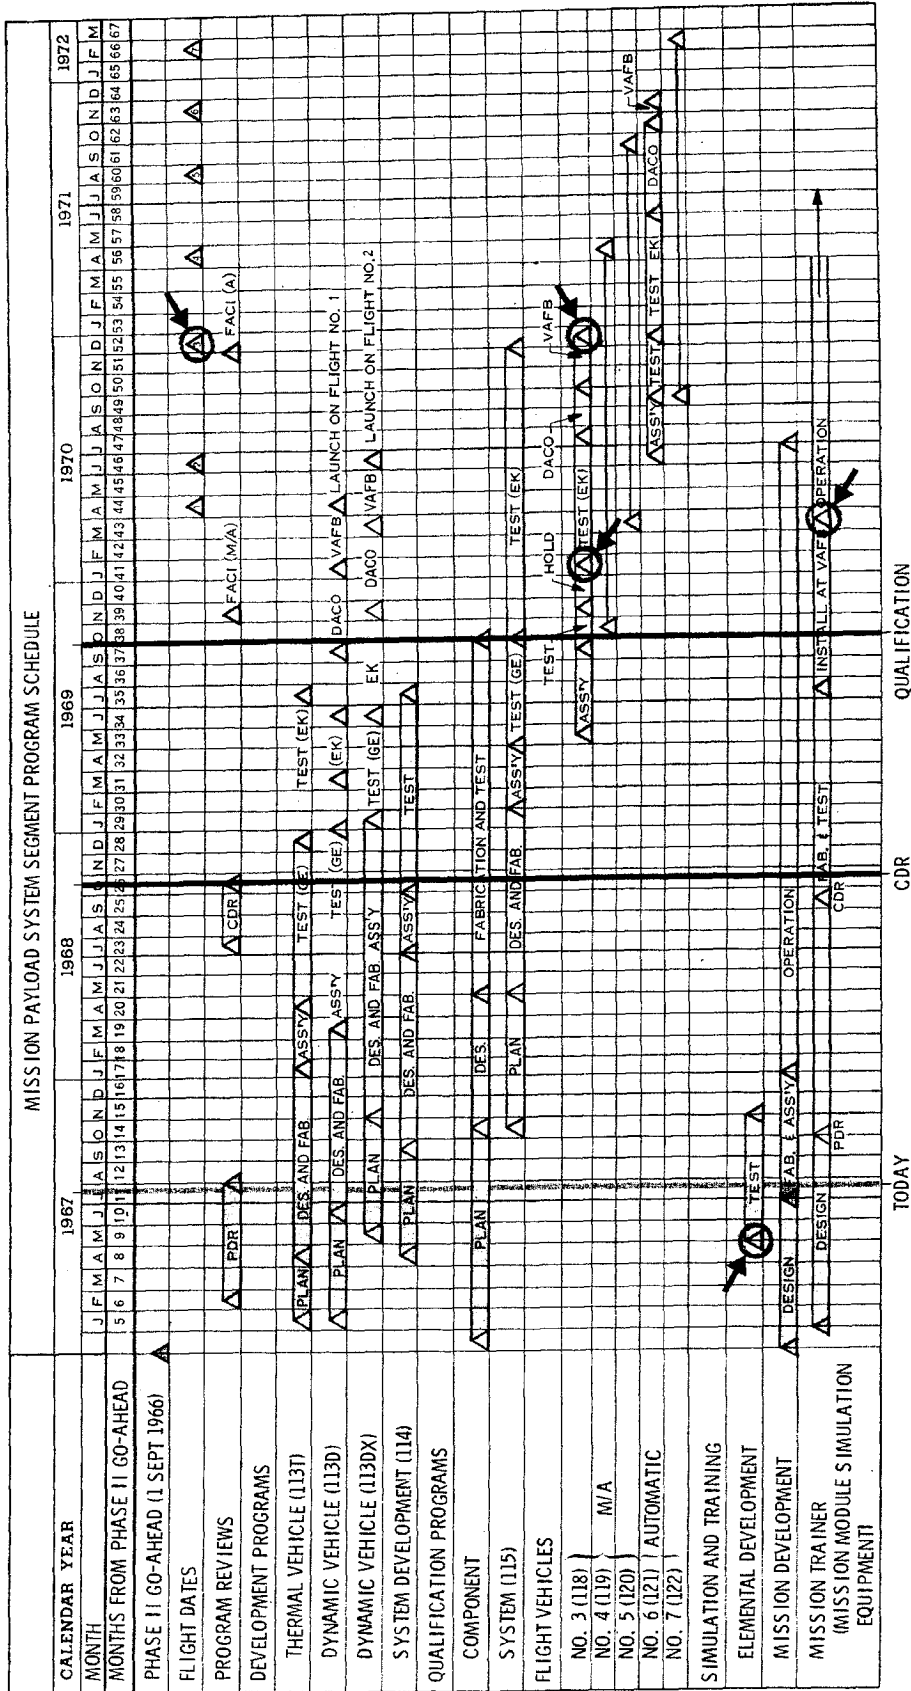 MISSION PAYLOAD SYSTEM SEGMENT PROGRAM SCHEDULE
CALENDAR YEAR 1967 1968 1969 1970 1971 1972
MONTH J F M A M J J A S O N D J F M A M J J A S O N D J F M A M J J A S O N D J F M A M J J A S O N D J F M A M J J A S O N D J F M
MONTHS FROM PHASE II GO-AHEAD 5 6 7 8 9 10 11 12 13 14 15 16 17 18 19 20 21 22 23 24 25 26 27 28 29 30 31 32 33 34 35 36 37 38 39 40 41 42 43 44 45 46 47 48 49 50 51 52 53 54 55 56 57 58 59 60 61 62 63 64 65 66 67
PHASE II GO-AHEAD (1 SEPT 1966)
FLIGHT DATES
PROGRAM REVIEWS PDR CDR FACI (M/A) FACI (A)
DEVELOPMENT PROGRAMS
THERMAL VEHICLE (113T) PLAN DES. AND FAB. ASS'Y TEST (GE) TEST (EK)
DYNAMIC VEHICLE (113D) PLAN DES. AND FAB. ASS'Y TEST (GE) (EK) DACO VAFB LAUNCH ON FLIGHT NO. 1
DYNAMIC VEHICLE (113DX) PLAN DES. AND FAB. ASS'Y TEST (GE) EK DACO VAFB LAUNCH ON FLIGHT NO. 2
SYSTEM DEVELOPMENT (114) PLAN DES. AND FAB. ASS'Y TEST
QUALIFICATION PROGRAMS
COMPONENT PLAN DES. FABRICATION AND TEST
SYSTEM (115) PLAN DES. AND FAB. ASS'Y TEST (GE) TEST (EK)
FLIGHT VEHICLES TEST HOLD DACO VAFB
NO. 3 (118) ASS'Y TEST (EK)
NO. 4 (119) M/A
NO. 5 (120) VAFB
NO. 6 (121) AUTOMATIC ASS'Y TEST TEST EK DACO
NO. 7 (122)
SIMULATION AND TRAINING
ELEMENTAL DEVELOPMENT TEST
MISSION DEVELOPMENT DESIGN FAB. & ASS'Y OPERATION
MISSION TRAINER DESIGN FAB. & TEST INSTALL AT VAFB OPERATION
(MISSION MODULE SIMULATION PDR CDR
EQUIPMENT)
TODAY CDR QUALIFICATION